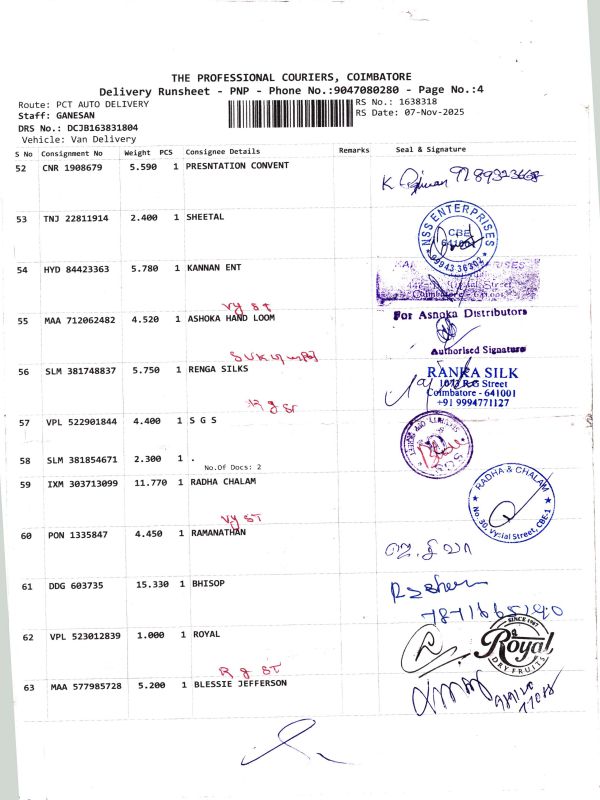 THE PROFESSIONAL COURIERS, COIMBATORE
Delivery Runsheet - PNP - Phone No.:9047080280 - Page No.:4
Route: PCT AUTO DELIVERY
RS No.: 1638318
Staff: GANESAN
RS Date: 07-Nov-2025
DRS No.: DCJB163831804
Vehicle: Van Delivery
S No Consignment No Weight PCS Consignee Details Remarks Seal & Signature
52 CNR 1908679 5.590 1 PRESNTATION CONVENT
K
53 TNJ 22811914 2.400 1 SHEETAL
NSS ENTERPRISES
CBE
641001
99943 36302
54 HYD 84423363 5.780 1 KANNAN ENT
Street
Coimbatore
Vy St
55 MAA 712062482 4.520 1 ASHOKA HAND LOOM
For Asnoka Distributors
Authorised Signature
56 SLM 381748837 5.750 1 RENGA SILKS
RANKA SILK
1073 R.G Street
Coimbatore - 641001
+91 9994771127
R g St
57 VPL 522901844 4.400 1 S G S
SGS
58 SLM 381854671 2.300 1 .
No.Of Docs: 2
59 IXM 303713099 11.770 1 RADHA CHALAM
RADHA & CHALAM
No. 30, Vysial Street, CBE-1
Vy ST
60 PON 1335847 4.450 1 RAMANATHAN
61 DDG 603735 15.330 1 BHISOP
62 VPL 523012839 1.000 1 ROYAL
SINCE 1967
Royal
DRY FRUITS
R g ST
63 MAA 577985728 5.200 1 BLESSIE JEFFERSON